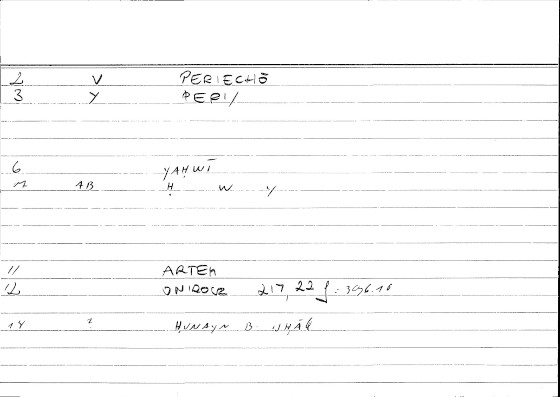 2 V PERIECHŌ
3 Y PERI/
6 YAḤWĪ
7 AB Ḥ W Y
11 ARTEM
12 ONIROCR 217,22 f: 396.10
14 ḤUNAYN B ISḤĀQ